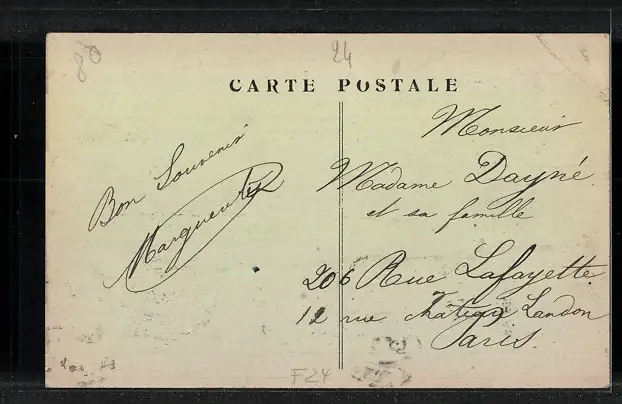 80
24
CARTE POSTALE
Bon Souvenir
Marguerite
Monsieur
Madame Dayné
et sa famille
206 Rue Lafayette
12 rue Landon
Paris.
F24